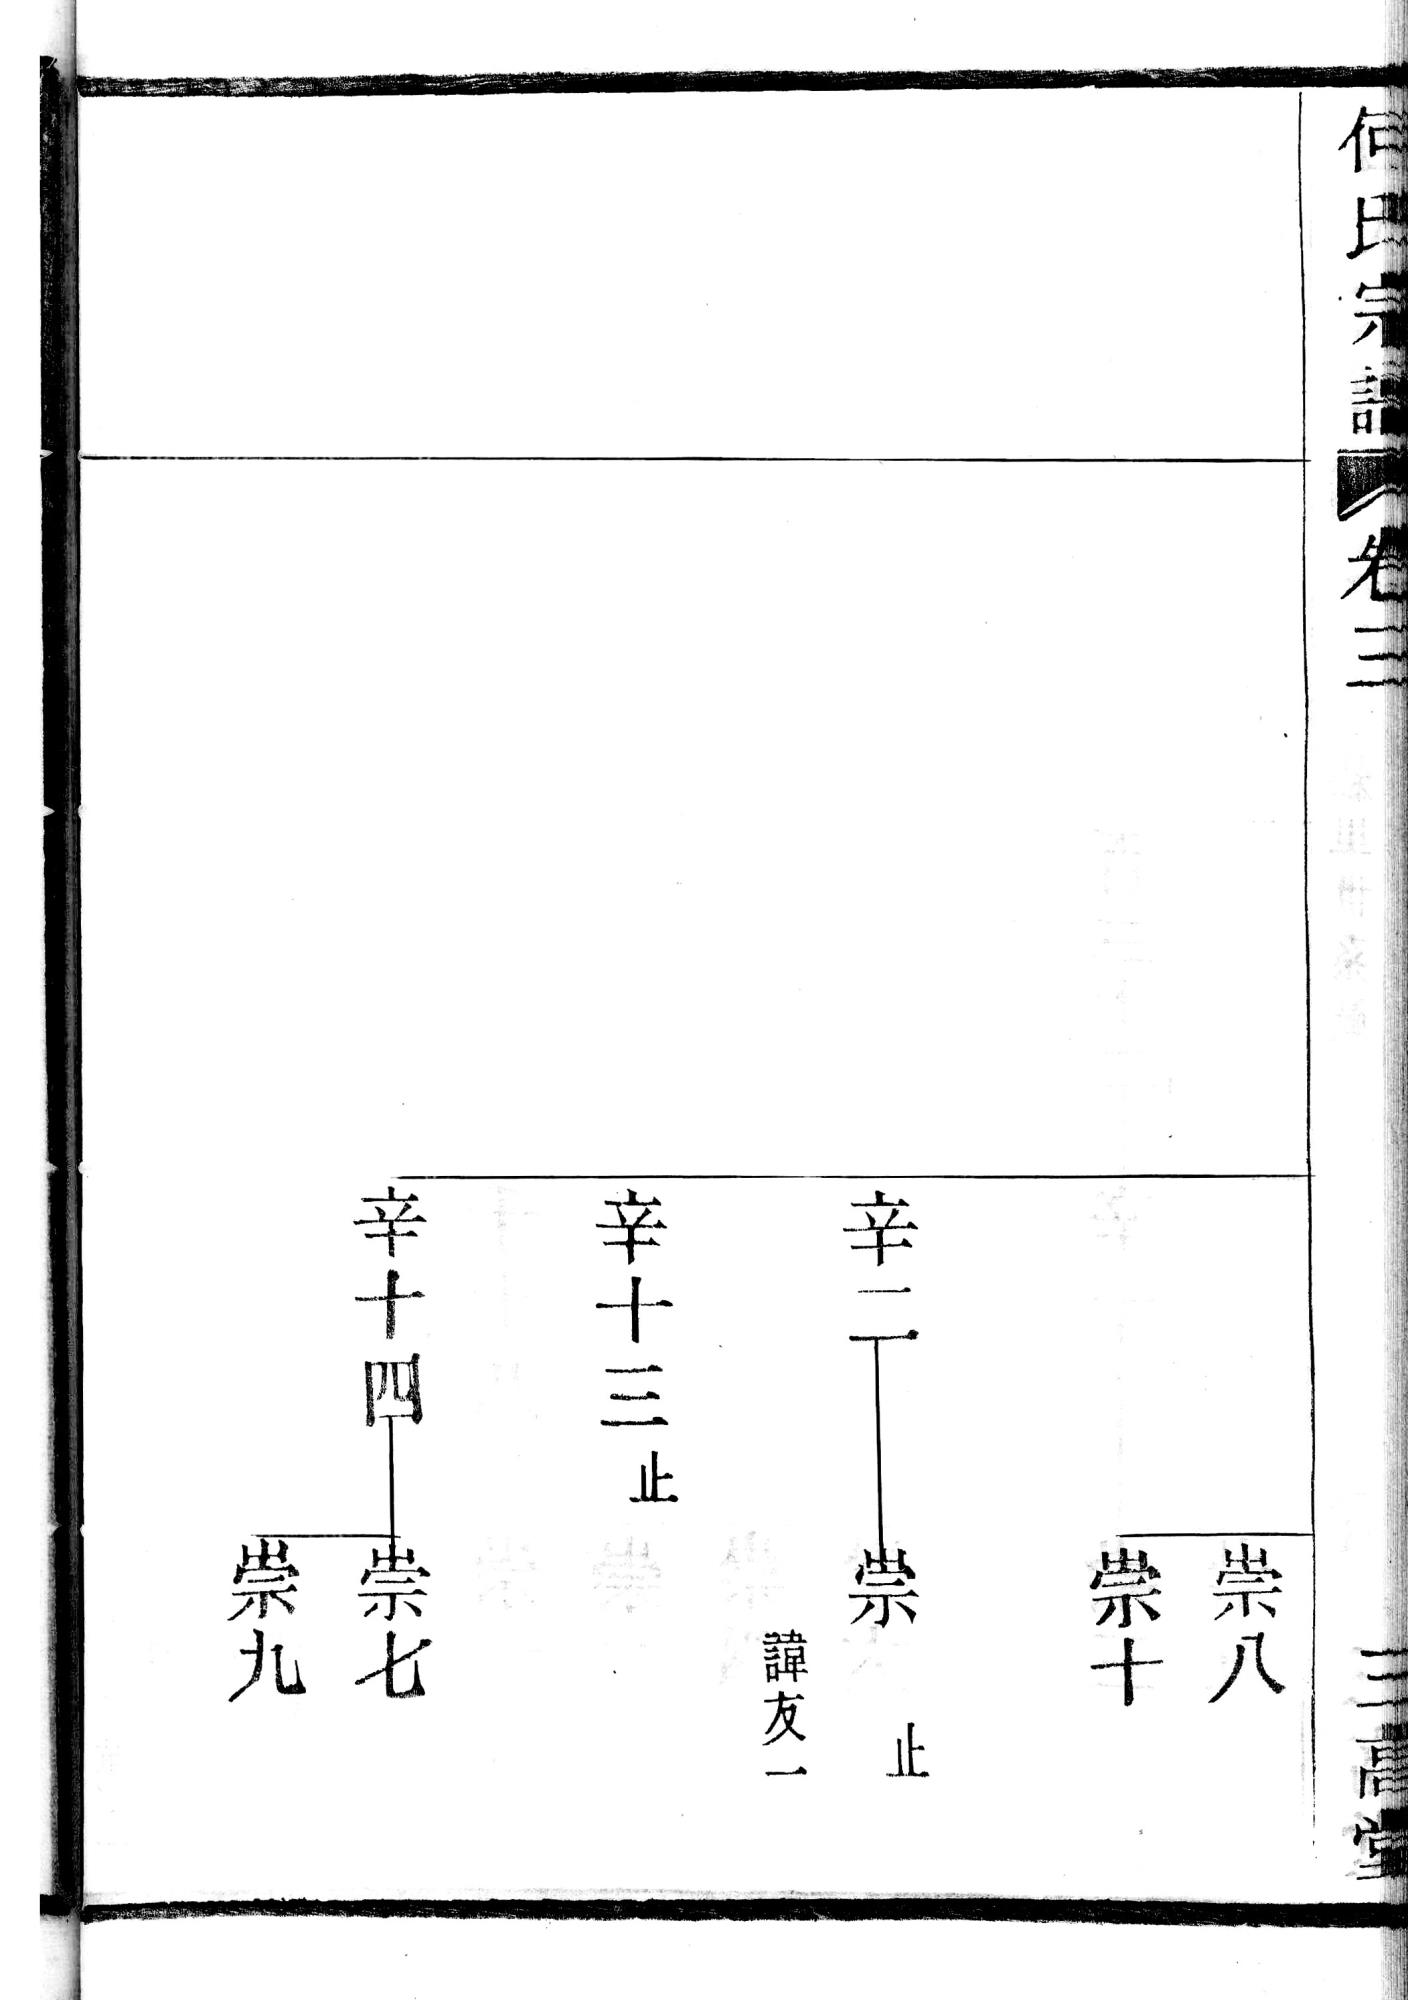 何氏宗譜
卷三
三高堂
崇八
崇十
辛二
崇
止
諱友一
辛十三
止
辛十四
崇七
崇九